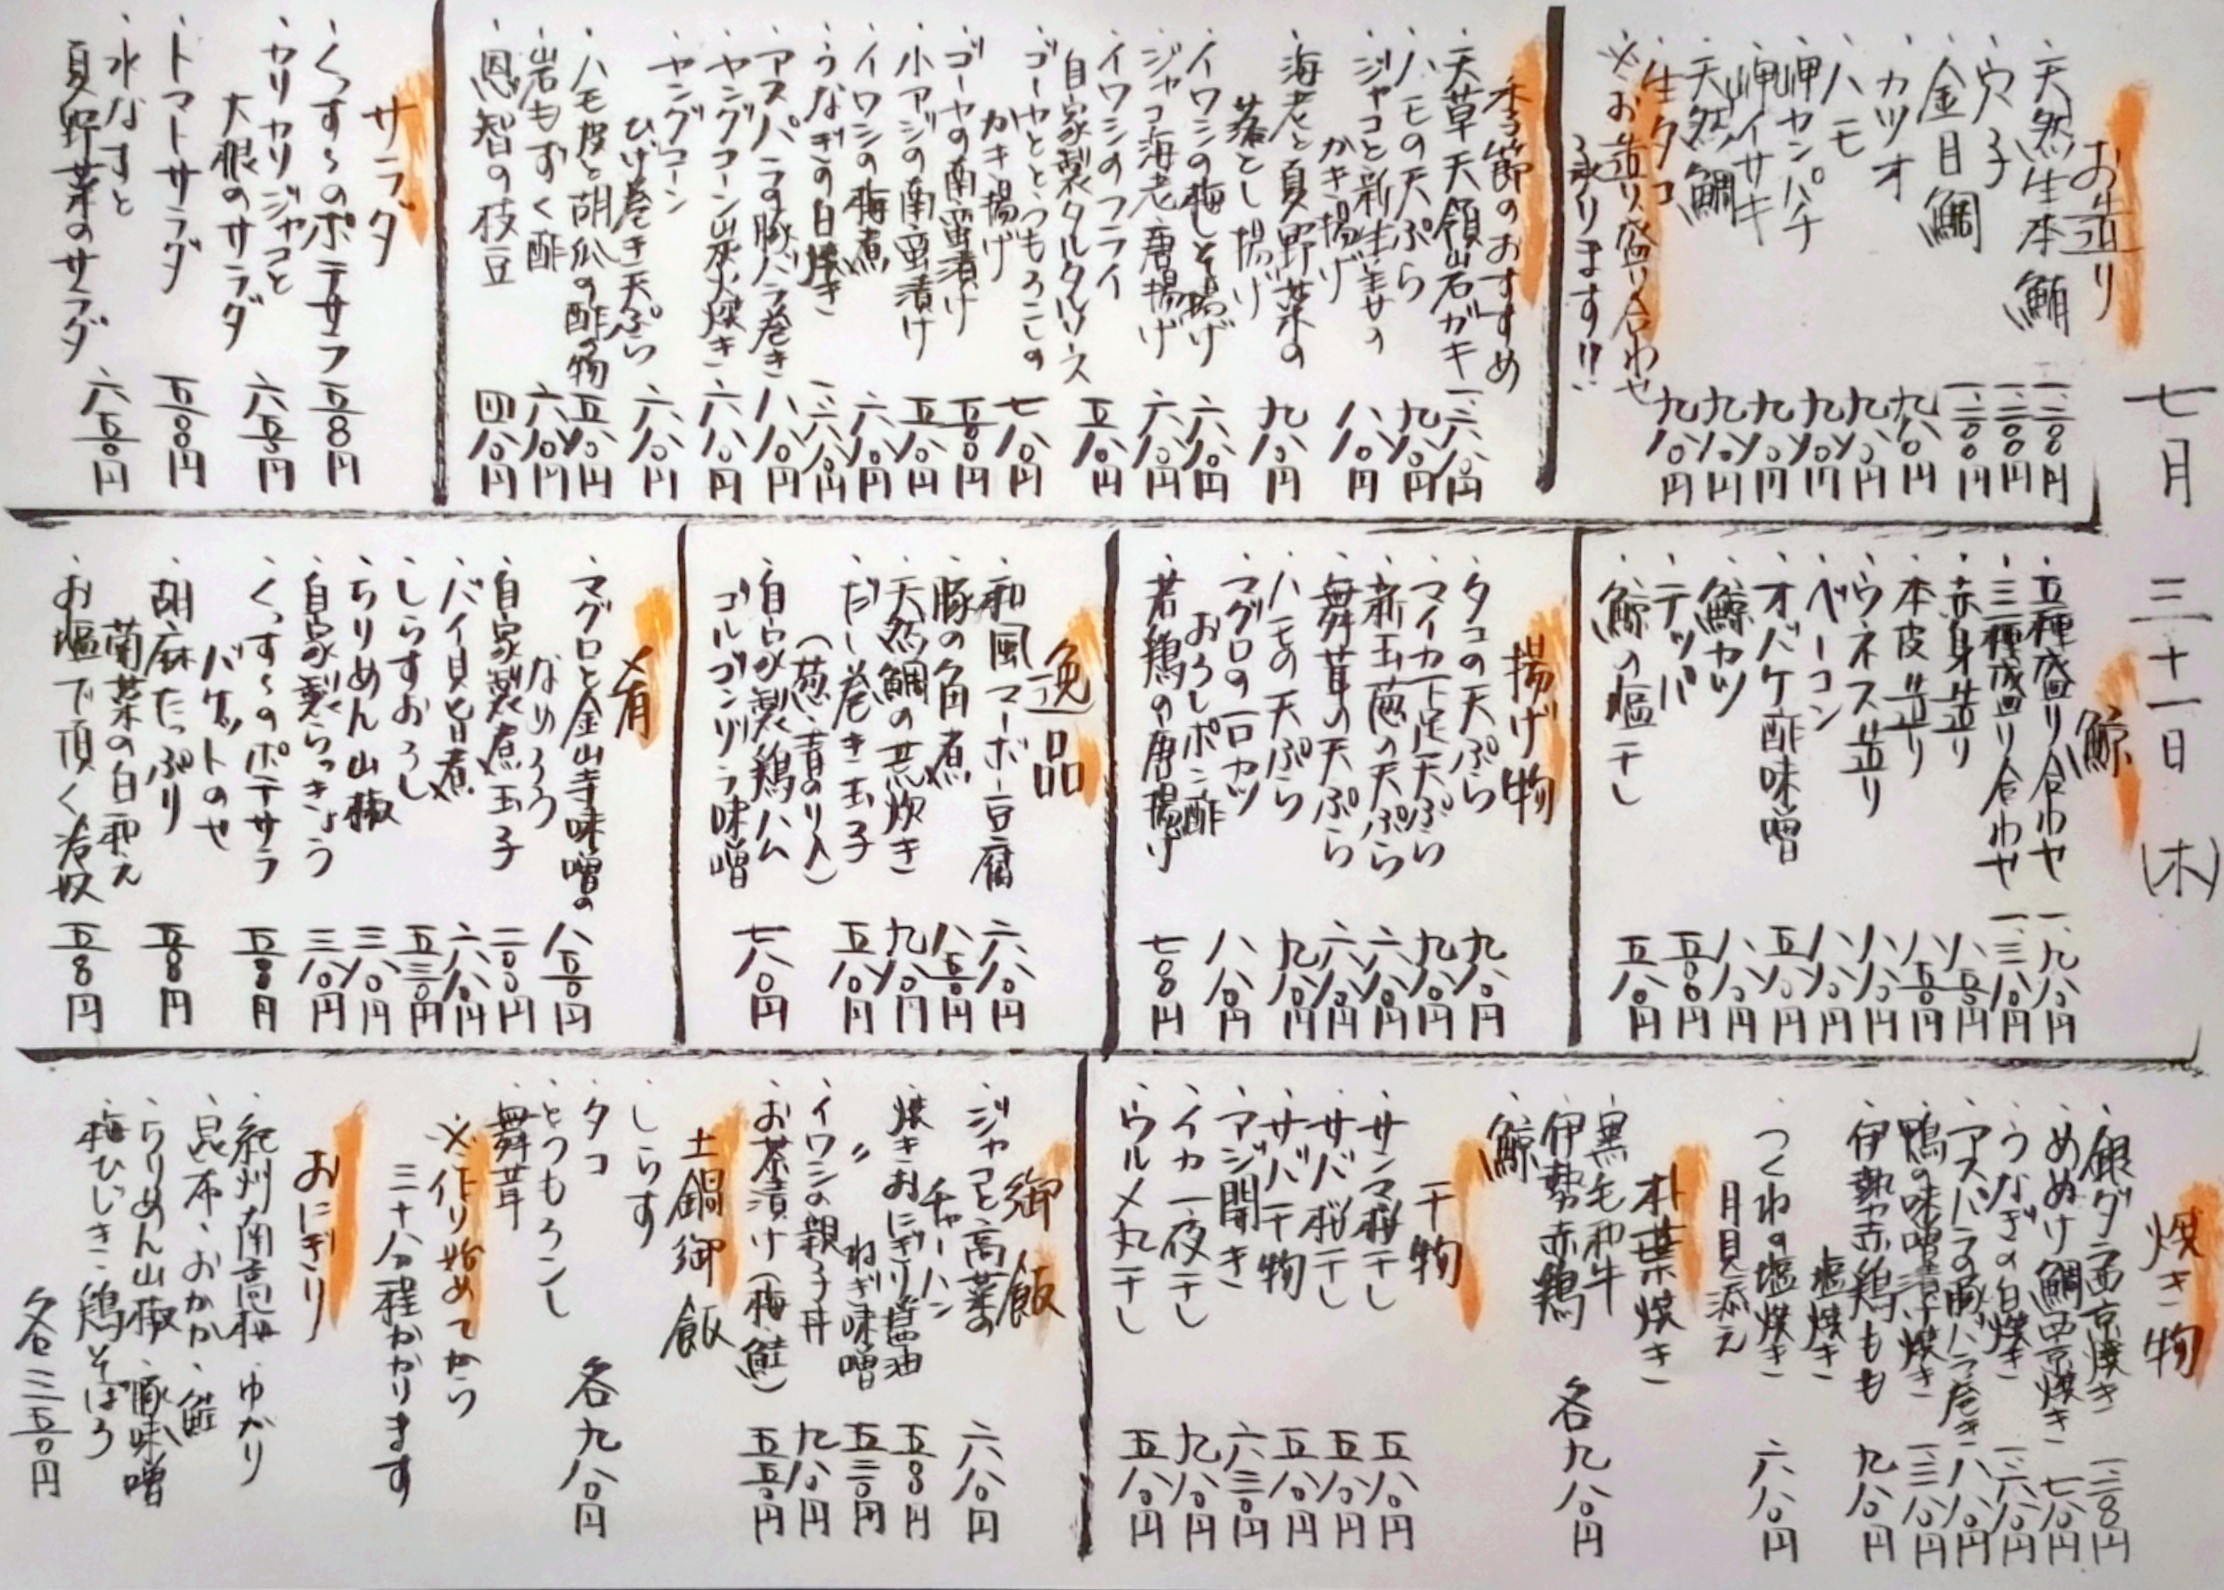 七月三十一日(木)
お造り
・天然生本鮪 一、二八〇円
・穴子 一、二〇〇円
・金目鯛 一、二〇〇円
・カツオ 九八〇円
・ハモ 九八〇円
・岬カンパチ 九八〇円
・岬イサキ 九八〇円
・天然鯛 九八〇円
・生タコ 九八〇円
※お造り盛り合わせ
承ります!!
季節のおすすめ
・天草天領岩ガキ 一、六八〇円
・ハモの天ぷら 九八〇円
・ジャコと新生姜の
かき揚げ 八八〇円
・海老と夏野菜の
落とし揚げ 九八〇円
・イワシの梅しそ揚げ 六八〇円
・ジャコ海老唐揚げ 六八〇円
・イワシのフライ
自家製タルタルソース 五八〇円
・ゴーヤととうもろこしの
かき揚げ 七八〇円
・ゴーヤの南蛮漬け 五〇〇円
・小アジの南蛮漬け 五八〇円
・イワシの梅煮 六八〇円
・うなぎの白焼き 一、六八〇円
・アスパラの豚バラ巻き 八八〇円
・ヤングコーン炭火焼き 六八〇円
・ヤングコーン
ひげ巻き天ぷら 六八〇円
・ハモ皮と胡瓜の酢の物 五八〇円
・岩もずく酢 六八〇円
・恩智の枝豆 四八〇円
サラダ
・くっすんのポテサラ 五〇円
・カリカリジャコと
大根のサラダ 六五〇円
・トマトサラダ 五〇〇円
・水なすと
夏野菜のサラダ 六五〇円
鯨
・五種盛り合わせ 一、九八〇円
・三種盛り合わせ 一、三八〇円
・赤身造り 八五〇円
・本皮造り 八五〇円
・ウネス造り 八八〇円
・ベーコン 八八〇円
・オバケ酢味噌 五八〇円
・鯨カツ 八八〇円
・テッパ 五〇〇円
・鯨の塩干し 五八〇円
揚げ物
・タコの天ぷら 九八〇円
・マイカ下足天ぷら 九八〇円
・新玉葱の天ぷら 六八〇円
・舞茸の天ぷら 六八〇円
・ハモの天ぷら 九八〇円
・マグロの一口カツ
おろしポン酢 八八〇円
・若鶏の唐揚げ 七〇円
逸品
・和風マーボー豆腐 六八〇円
・豚の角煮 八五〇円
・天然鯛の荒炊き 九八〇円
・だし巻き玉子 五八〇円
(葱・青のり入)
・自家製鶏ハム
ゴルゴンゾーラ味噌 七八〇円
肴
・マグロと金山寺味噌の
なめろう 八五〇円
・自家製煮玉子 二〇〇円
・バイ貝旨煮 六八〇円
・しらすおろし 五三〇円
・ちりめん山椒 三八〇円
・自家製らっきょう 三八〇円
・くっすんのポテサラ
バゲットのせ 五〇円
・胡麻たっぷり
菊菜の白和え 五〇円
・お塩で頂く冷奴 五〇円
焼き物
・銀ダラ西京焼き 一、二八〇円
・めぬけ鯛西京焼き 七八〇円
・うなぎの白焼き 一、六八〇円
・アスパラの豚バラ巻き 八八〇円
・鴨の味噌漬け焼き 一、三八〇円
・伊勢赤鶏もも
塩焼き 九八〇円
・つくねの塩焼き
月見添え 六八〇円
朴葉焼き
・黒毛和牛
・伊勢赤鶏
・鯨
各九八〇円
干物
・サンマ桜干し 五八〇円
・サバ桜干し 五八〇円
・サバ干物 五八〇円
・アジ開き 六三〇円
・イカ一夜干し 九八〇円
・ウルメ丸干し 五八〇円
御飯
・ジャコと高菜の
チャーハン 六八〇円
・焼きおにぎり醤油 五〇円
・〃 ねぎ味噌 五三〇円
・イワシの親子丼 九八〇円
・お茶漬け(梅・鮭) 五五〇円
土鍋御飯
・しらす
・タコ
・とうもろこし
・舞茸
各九八〇円
※作り始めてから
三十分程かかります
おにぎり
・紀州南高梅・ゆかり
・昆布・おかか・鮭
・ちりめん山椒・豚味噌
・梅ひじき・鶏そぼろ
各三五〇円